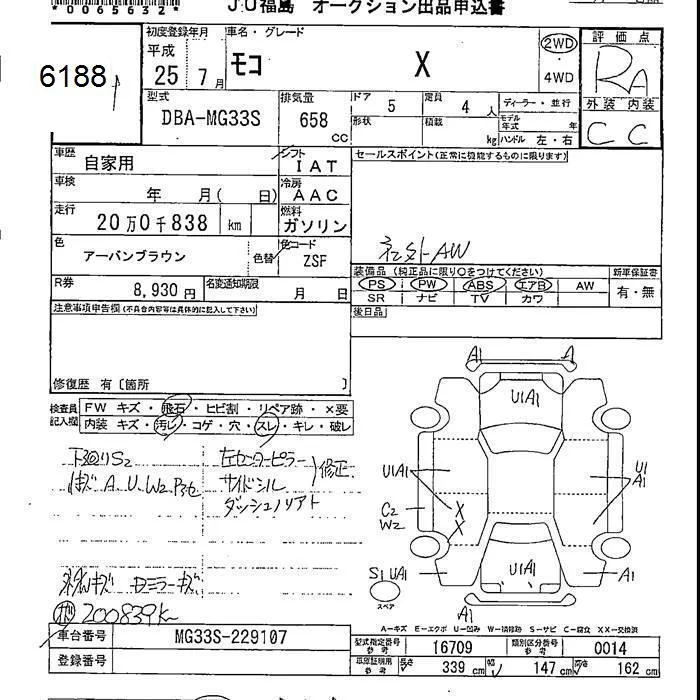 *0065632*
JU福島 オークション出品申込書
6188
初度登録年月 車名・グレード
平成 25年 7月 モコ X 2WD 4WD
評価点 RA
外装 内装
C C
型式 排気量 ドア 5 定員 4人 ディーラー・並行
DBA-MG33S 658cc 形状 積載 kg モデル年式 年 ハンドル 左・右
車歴 自家用 シフト IAT セールスポイント(正常に機能するものに限ります)
車検 年 月( 日) 冷房 AAC
走行 20万0千838 km 燃料 ガソリン
社外AW
色 アーバンブラウン 色替 色コード ZSF
装備品(純正品に限り○をつけてください) 新車保証書
PS PW ABS エアB AW 有・無
SR ナビ TV カワ
R券 8,930円 名変通知期限 月 日
後日品
注意事項申告欄(不具合内容等は具体的に記入して下さい)
修復歴 有〔箇所 〕
検査員記入欄 FW キズ・飛石・ヒビ割・リペア跡・×要
内装 キズ・汚レ・コゲ・穴・スレ・キレ・破レ
下廻りS2 左センターピラー
キズ A.U.W2 サイドシル 修正
ダッシュ
キズ Dミラーキズ
200839K
A1 A
U1A1
U1A1 U1 A1
C2 W2 X X
S1 U1A1 U1A1 A1
スペア A1
A-キズ E-エクボ U-凹み W-補修跡 S-サビ C-腐食 XX-交換済
車台番号 MG33S-229107
型式指定番号 参考 16709 類別区分番号 参考 0014
登録番号
車庫証明用 参考 長さ 339cm 幅 147cm 高さ 162cm